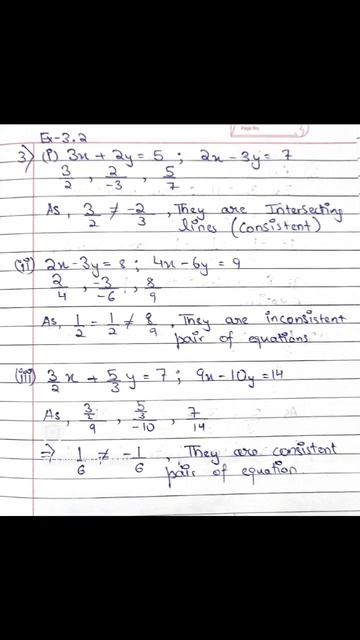 Page No.
Ex-3.2
3) (i) 3x + 2y = 5 ; 2x - 3y = 7
3/2 , 2/-3 , 5/7
As, 3/2 ≠ -2/3 , They are Intersecting
lines (consistent)
(ii) 2x - 3y = 8 ; 4x - 6y = 9
2/4 , -3/-6 , 8/9
As, 1/2 = 1/2 ≠ 8/9 , They are inconsistent
pair of equations
(iii) 3/2 x + 5/3 y = 7 ; 9x - 10y = 14
As, 3/2/9 , 5/3/-10 , 7/14
⇒ 1/6 ≠ -1/6 , They are consistent
pair of equation